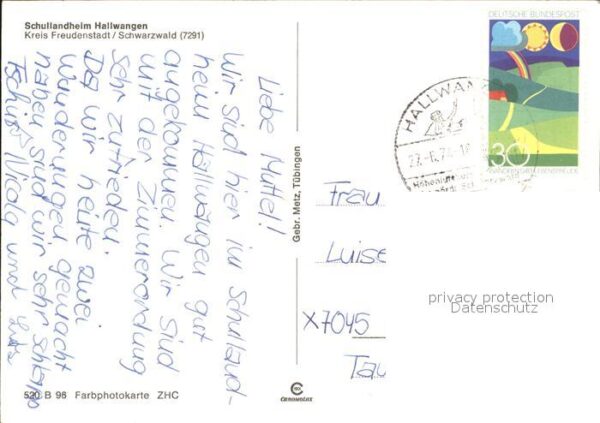 Schullandheim Hallwangen
Kreis Freudenstadt / Schwarzwald (7291)
Liebe Muttel!
Wir sind hier im Schulland-
heim Hallwangen gut
angekommen. Wir sind
mit der Zimmerordnung
sehr zufrieden.
Da wir heute zwei
Wanderungen gemacht
haben sind wir sehr schlapp
Tschüß Nicola und
520 B 96 Farbphotokarte ZHC
Gebr. Metz, Tübingen
CEKACOLOR
DEUTSCHE BUNDESPOST
30
WANDERN GIBT LEBENSFREUDE
HALLWANGEN
Frau
Luise
X7045
Tau
privacy protection
Datenschutz